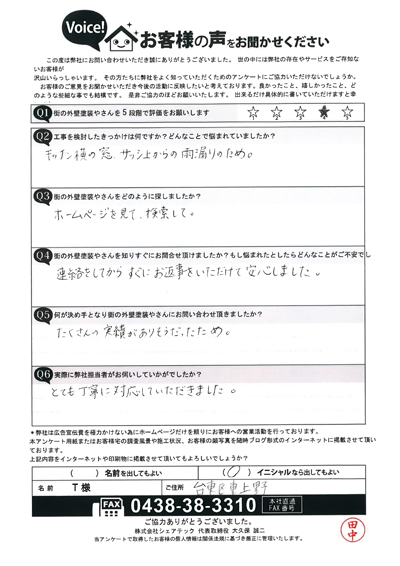 Voice!
お客様の声をお聞かせください
この度は弊社にお問い合わせいただき誠にありがとうございました。世の中には弊社の存在やサービスをご存知ないお客様が
沢山いらっしゃいます。その方たちに弊社をよく知っていただくためのアンケートにご協力いただけないでしょうか。
お客様のご意見をお聞かせいただき今後の活動に反映したいと考えております。良かったこと、嬉しかったこと、ど
のような些細な事でも結構です。是非ご協力のほどお願いいたします。出来るだけ具体的に書いていただけますと幸
Q1 街の外壁塗装やさんを5段階で評価をお願いします ☆ ☆ ☆ ★ ☆
Q2 工事を検討したきっかけは何ですか?どんなことで悩まれていましたか?
キッチン横の窓、サッシ上からの雨漏りのため。
Q3 街の外壁塗装やさんをどのように探しましたか?
ホームページを見て、検索して。
Q4 街の外壁塗装やさんを知りすぐにお問合せ頂けましたか?もし悩まれたとしたらどんなことがご不安でし
連絡をしてからすぐにお返事をいただけて安心しました。
Q5 何が決め手となり街の外壁塗装やさんにお問い合わせ頂きましたか?
たくさんの実績がありそうだったため。
Q6 実際に弊社担当者がお伺いしていかがでしたか?
とても丁寧に対応していただきました。
*弊社は広告宣伝費を極力かけない為にホームページだけを頼りにお客様への営業活動を行っております。
本アンケート用紙またはお客様宅の調査風景や施工状況、お客様の顔写真を随時ブログ形式のインターネットに掲載させて頂いております。
上記内容をインターネットや印刷物に掲載させて頂いてもよろしいでしょうか?
( ) 名前を出してもよい (○) イニシャルなら出してもよい
名前 T様 ご住所 台東区東上野
FAX 0438-38-3310 本社直通 FAX番号
ご協力ありがとうございました。
株式会社シェアテック 代表取締役 大久保 誠二
当アンケートで取得したお客様の個人情報は関係法規に基づき厳正に管理いたします。
田中